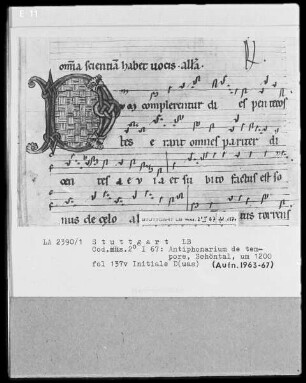 E 11
omnia scientiam habet vocis. alla.
Dum complerentur di es pentecos
tes e rant omnes pariter di
cen tes a e v ia et su bito factus est so
nus de celo al tamquam torrens
LA 2390/1 Stuttgart LB
Cod.mus.2° I 67: Antiphonarium de tem-
pore, Schöntal, um 1200
fol 137v Initiale D(uas) (Aufn.1963-67)